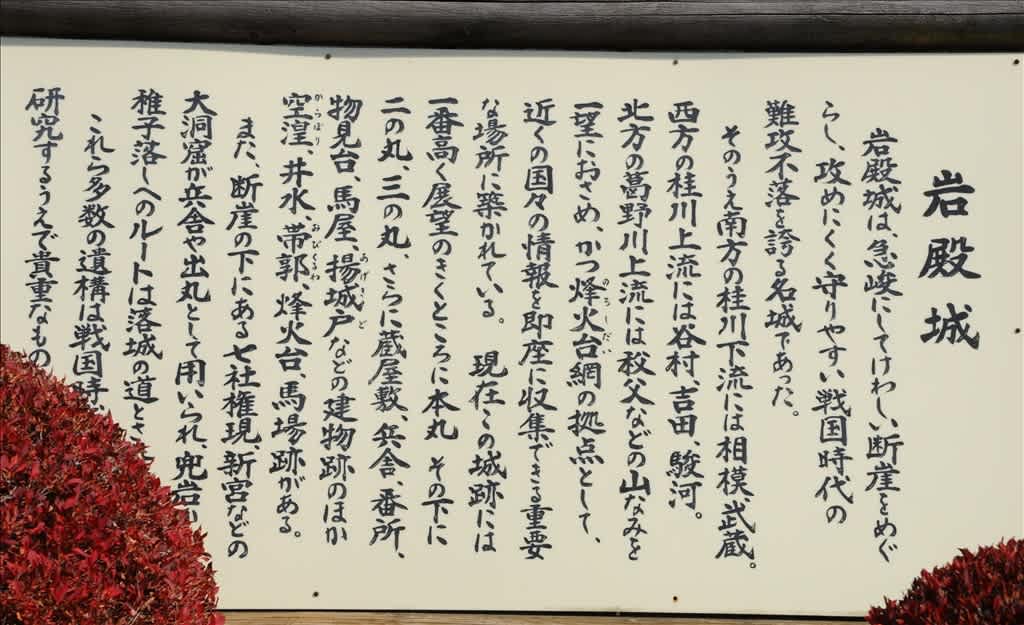 岩殿城
岩殿城は、急峻にしてけわしい断崖をめぐ
らし、攻めにくく守りやすい戦国時代の
難攻不落を誇る名城であった。
そのうえ南方の桂川下流には相模、武蔵。
西方の桂川上流には谷村、吉田、駿河。
北方の葛野川上流には秩父などの山なみを
一望におさめ、かつ烽火台網の拠点として、
のろしだい
近くの国々の情報を即座に収集できる重要
な場所に築かれている。 現在この城跡には
一番高く展望のきくところに本丸 その下に
二の丸、三の丸、さらに蔵屋敷、兵舎、番所、
物見台、馬屋、揚城戸などの建物跡のほか
あげきど
空湟、井水、帯郭、烽火台、馬場跡がある。
からぼり おびくるわ
また、断崖の下にある七社権現、新宮などの
大洞窟が兵舎や出丸として用いられ、兜岩
稚子落しへのルートは落城の道とさ
これら多数の遺構は戦国時
研究するうえで貴重なもの